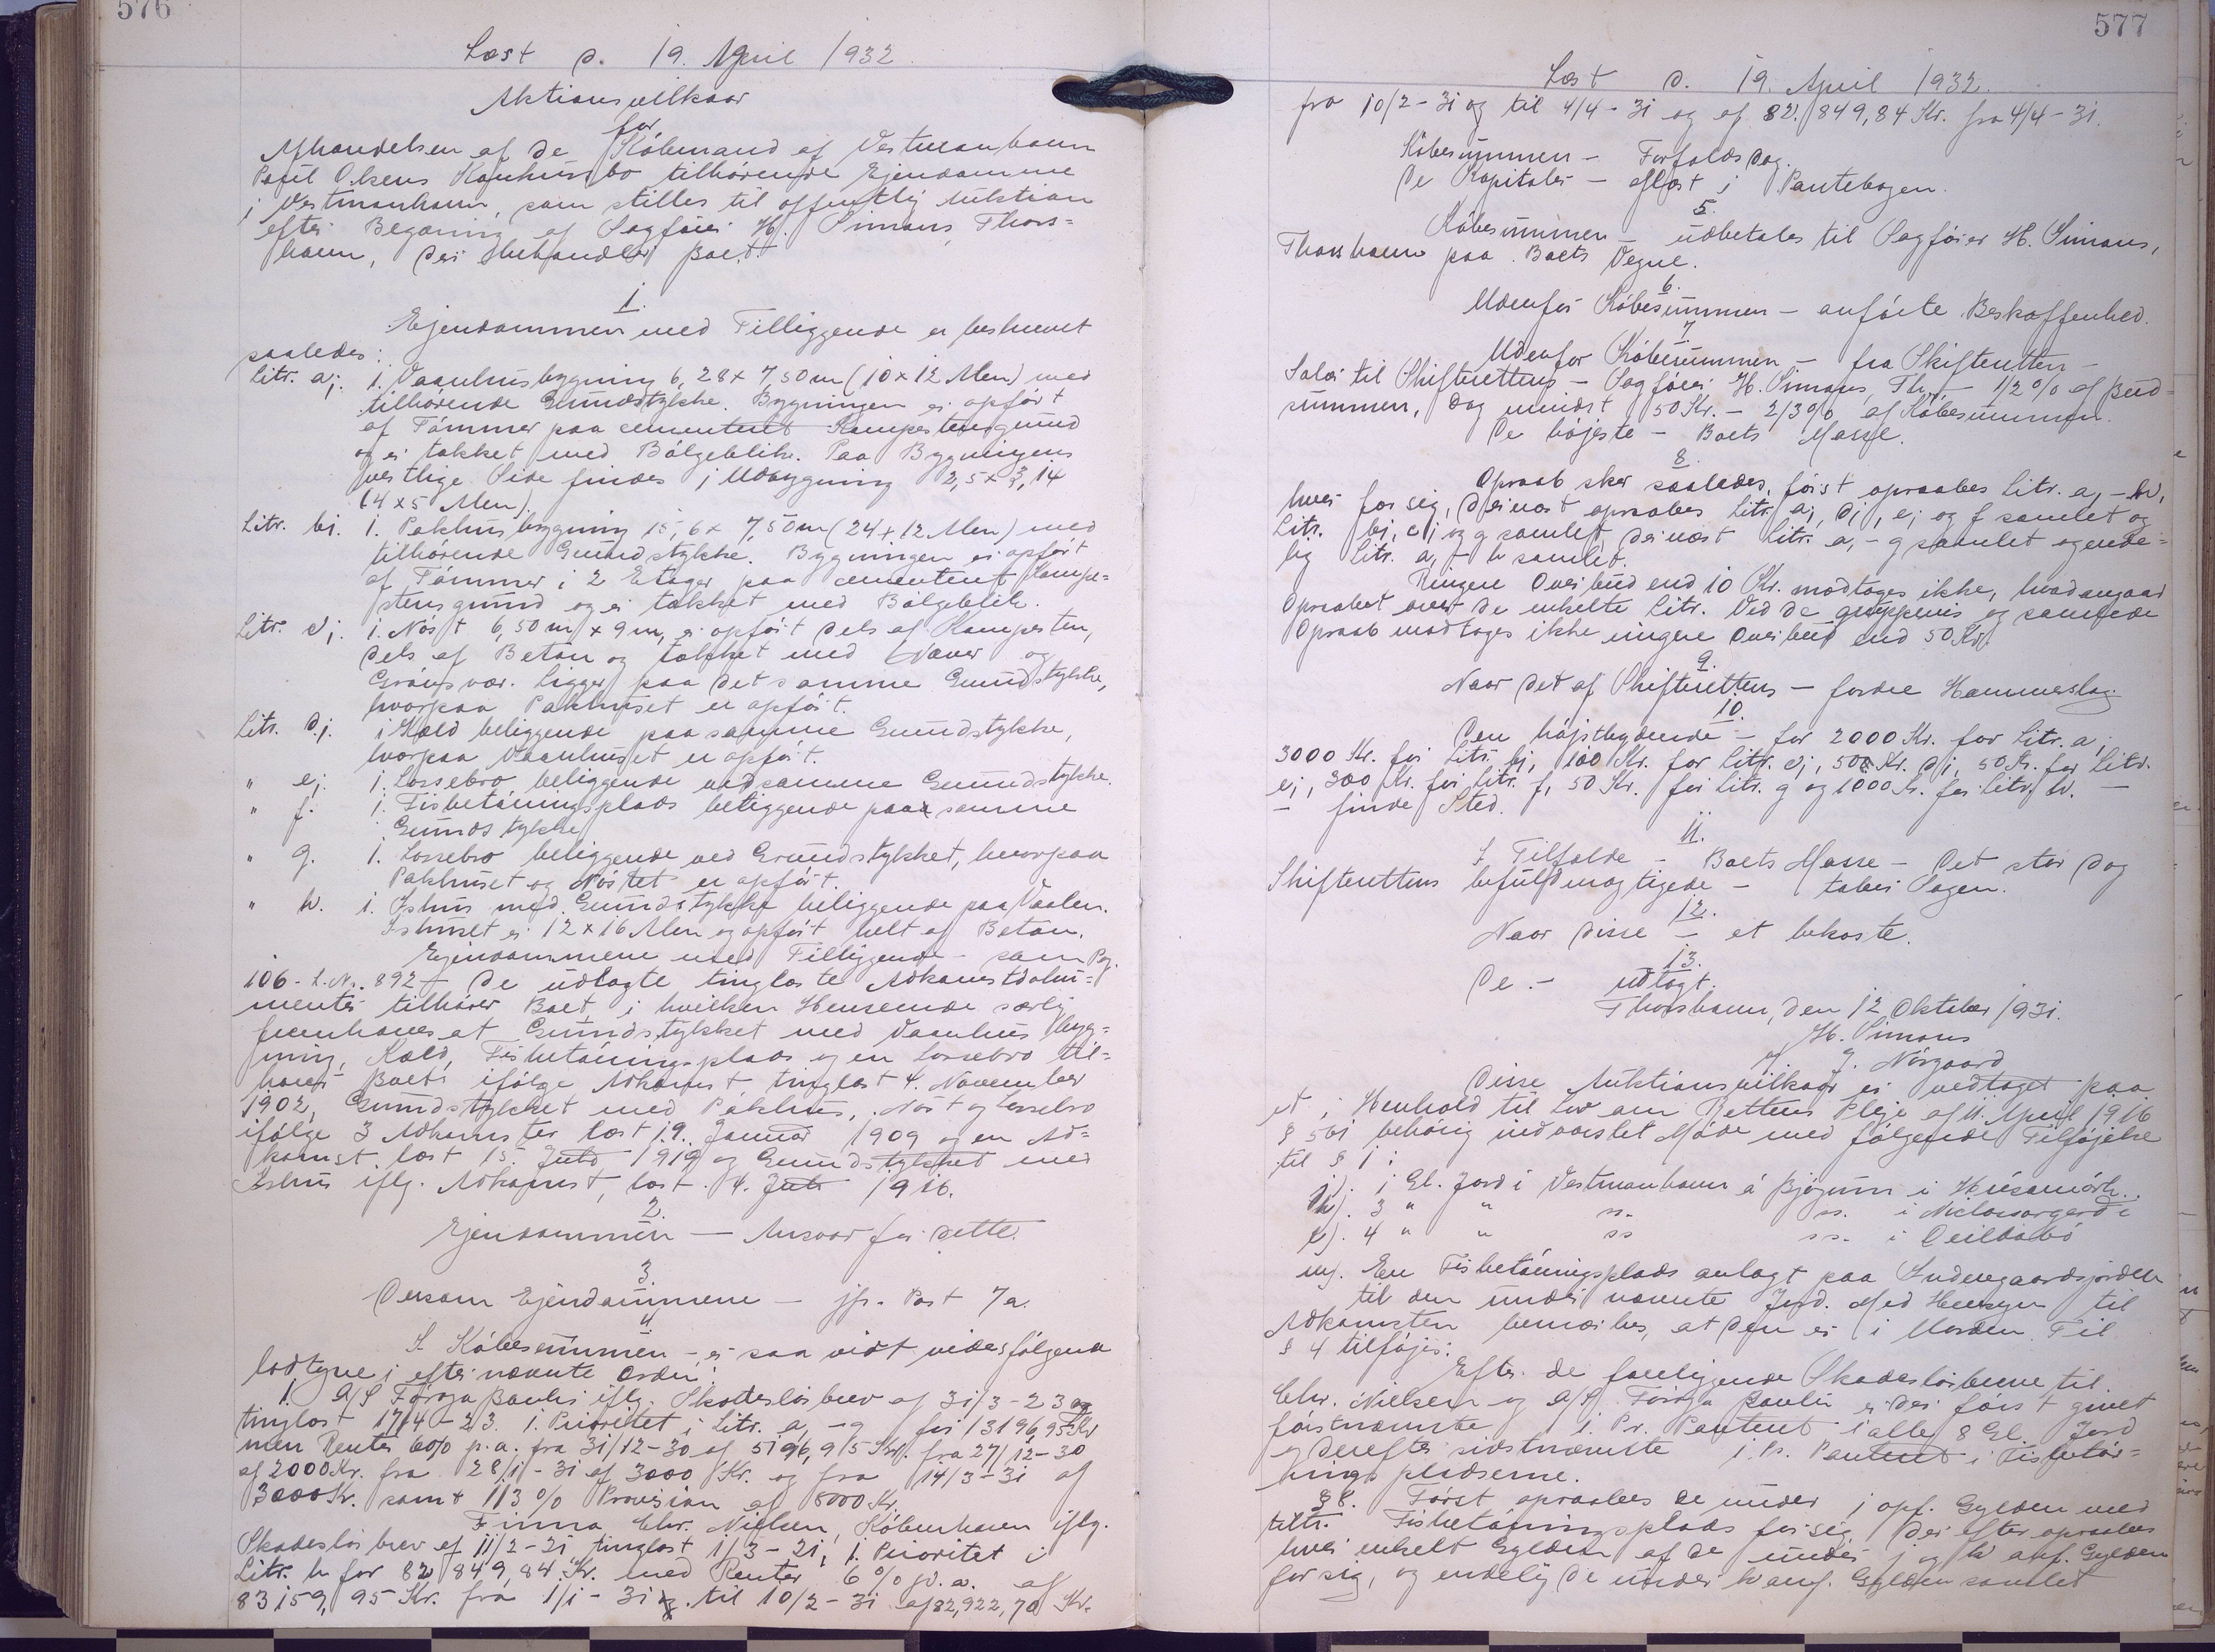 576
Læst d. 19. April 1932.
Auktionsvilkaar
for
Afhændelsen af de Købmand af Vestmanhavn
Poul Olsens Konkursbo tilhørende Ejendomme
i Vestmanhavn, som stilles til offentlig Auktion
efter Begæring af Sagfører H. Simans, Thors=
havn, der behandler Boet.
1.
Ejendommen med Tilliggende er beskrevet
saaledes:
Litr. a). 1. Vaanhusbygning 6,28 x 7,50 m (10 x 12 Alen) med
tilhørende Grundstykke. Bygningen er opført
af Tømmer paa cementeret Kampestensgrund
og er tækket med Bølgeblik. Paa Bygningens
vestlige Side findes 1 Udbygning 2,5 x 3,14
(4 x 5 Alen).
Litr. b). 1. Pakhusbygning 15,6 x 7,50 m (24 x 12 Alen) med
tilhørende Grundstykke. Bygningen er opført
af Tømmer i 2 Etager paa cementeret Kampe=
stensgrund og er tækket med Bølgeblik.
Litr. c). 1. Nøst 6,50 m x 9 m, er opført dels af Kampesten,
dels af Beton og tækket med Næver og
Grønsvær. Ligger paa det samme Grundstykke,
hvorpaa Pakhuset er opført.
Litr. d). 1 Kæld beliggende paa samme Grundstykke,
hvorpaa Vaanhuset er opført.
" e). 1. Lossebro beliggende ved samme Grundstykke.
" f. 1. Fisketørringsplads beliggende paa samme
Grundstykke
" g. 1. Lossebro beliggende ved Grundstykket, hvorpaa
Pakhuset og Nøstet er opført.
" h. 1. Ishus med Grundstykke beliggende paa Vaalen.
Ishuset er 12 x 16 Alen og opført helt af Beton.
Ejendommene med Tilliggende - som Pg.
106 - L. Nr. 892 - De udlagte tinglæste Adkomstdoku=
menter tilhører Boet, i hvilken Henseende særlig
fremhæves at Grundstykket med Vaanhusbyg=
ning, Kæld, Fisketørringsplads og en Lossebro til=
hører Boet ifølge Adkomst tinglæst 4. November
1902, Grundstykket med Pakhus, Nøst og Lossebro
ifølge 3 Adkomster læst 19. Januar 1909 og en Ad=
komst læst 15 Juli 1919 og Grundstykket med
Ishus iflg. Adkomst, læst 4. Juli 1916.
2.
Ejendommen — Ansvar for dette.
3.
Dersom Ejendommene — jfr. Post 7a.
4.
I Købesummen - er saa vidt vides følgende
lodtegne i efternævnte Orden:
1. A/S Føroya Banki iflg. Skadesløsbrev af 31/3-23 og
tinglæst 17/4-23. 1. Prioritet i Litr. a, - g for 13196,95 Kr
men Renter 6% p.a. fra 31/12-30 af 5196,95 Kr. fra 27/12-30
af 2000 Kr. fra 28/1-31 af 3000 Kr. og fra 14/3-31 af
3000 Kr. samt 1/3 % Provision af 8000 Kr.
Firma Chr. Nielsen, København iflg.
Skadesløsbrev af 11/2-21, tinglæst 1/3-21, 1. Prioritet i
Litr. h for 82 849,84 Kr. med Renter 6 % p. a. af
83159,95 Kr. fra 1/1-31 til 10/2-31 af 82,922,70 Kr.
577
Læst d. 19. April 1932.
fra 10/2-31 og til 4/4-31 og af 82.849,84 Kr. fra 4/4-31.
Købesummen - Forfaldsdag.
De Kapitaler - aflæst i Pantebogen.
5.
Købesummen - udbetales til Sagfører H. Simans,
Thorshavn paa Boets Vegne.
6.
Udenfor Købesummen - anførte Beskaffenhed.
7.
Udenfor Købesummen - fra Skifteretten -
Salær til Skifterettens - Sagfører H. Simans, Th. - 1/2 % af Bud=
summen, dog mindst 50 Kr. - 2/3 % af Købesummen.
De højeste - Boets Masse.
8.
Opraab sker saaledes, først opraabes Litr. a, - h,
hver for sig, dernæst opraabes Litr. a), d), e) og f samlet og
Litr. b), c) og g samlet, dernæst Litr. a, - g samlet og ende=
lig Litr. a, - h samlet.
Ringere Overbud end 10 Kr. modtages ikke, hvad angaar
Opraabet over de enkelte Litr. Ved de gruppevis og samlede
Opraab modtages ikke ringere Overbud end 50 Kr.
9.
Naar det af Skifterettens - fordre Hammerslag.
10.
Den højstbydende - for 2000 Kr. for Litr. a,
3000 Kr. for Litr. b), 100 Kr. for Litr. c), 500 Kr. d), 50 Kr. for Litr.
e), 300 Kr. for Litr. f, 50 Kr. for Litr. g og 1000 Kr. for Litr. h. -
- finde Sted.
11.
I Tilfælde - Boets Masse - Det står dog
Skifterettens befuldmægtigede - taber Sagen.
12.
Naar disse - et bekoste.
13.
De. - udlagt.
Thorshavn, den 12 Oktober 1931.
H. Simans
J. Nørgaard
Disse Auktionsvilkaar er vedtaget paa
et i Henhold til Lov om Rettens Pleje af 11. April 1916
§ 561 behørig indvarslet Møde med følgende Tilføjelse
til § 1:
j). 1 Gl. Jord i Vestmanhavn á Bjógvum i Húsamørk.
k). 3 " " ss. ss. i Niclassargerði
l). 4 " " ss ss. i Deildabó
m). En Fisketørringsplads anlagt paa Inderegaardsjorden
til den under nævnte Jord. Med Hensyn til
Adkomsten bemærkes, at den er i Orden. Til
§ 4 tilføjes:
Efter de foreliggende Skadesløsbreve til
Chr. Nielsen og A/S. Føroya Banki er der først givet
førstnævnte 1. Pr. Panteret i alle 8 Gl. Jord
og derefter sidstnævnte 1. Pr. Panteret i Fisketør=
ringspladserne.
§ 8. Først opraabes de under j opf. Gylden med
tilh. Fisketørringsplads for sig, derefter opraabes
hver enkelt Gylden af de under j og k anf. Gylden
for sig, og endelig de under k anf. Gylden samlet